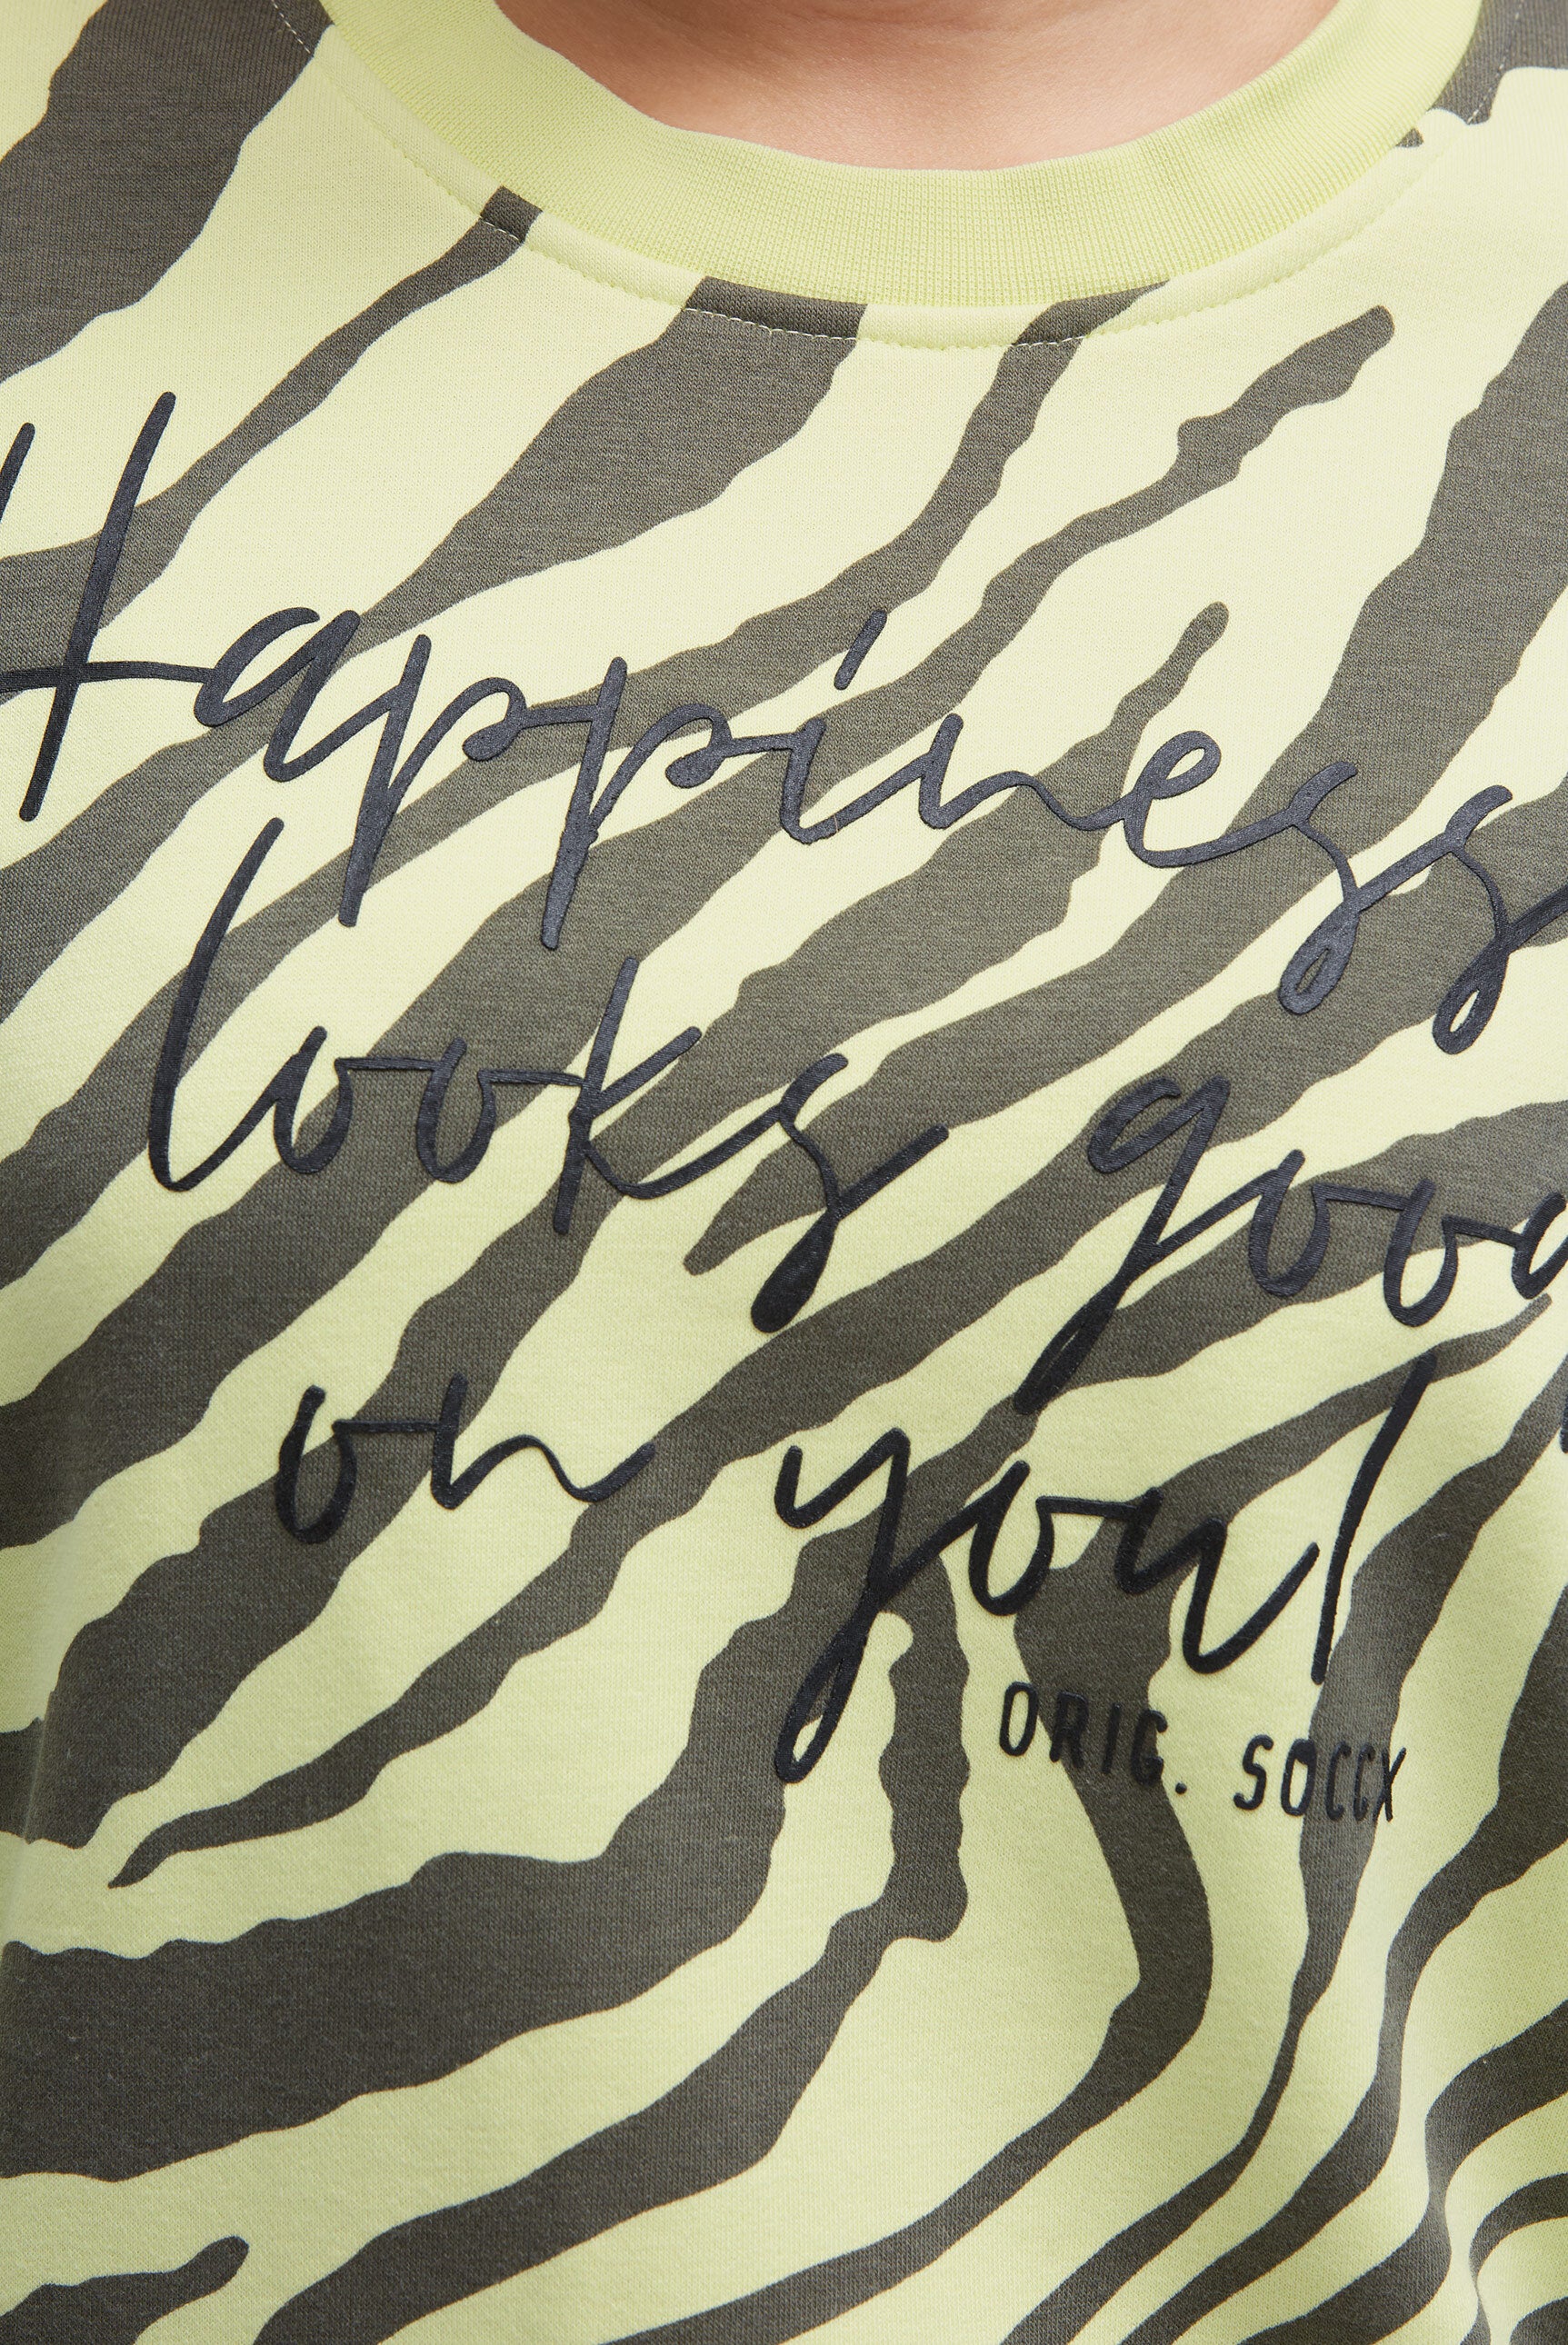 Happiness
looks good
on you!
ORIG. SOCCX